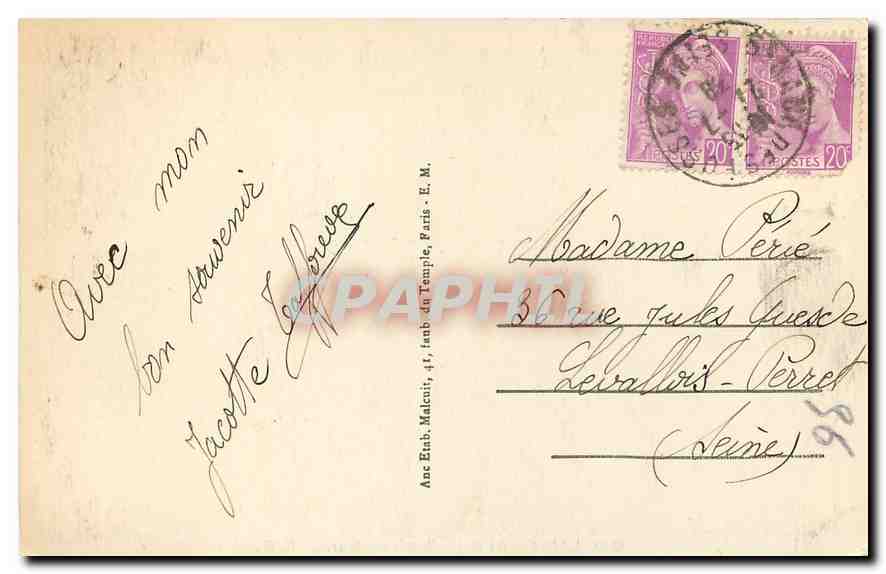 Avec mon
bon souvenir
Jacotte
Anc Etab. Malcuit, 41, faub. du Temple, Paris - E. M.
CPAPHIL
REPUBLIQUE
FRANCAISE
POSTES 20c
POSTES 20c
Madame Périé
36 rue Jules Guesde
Levallois-Perret
(Seine)
98